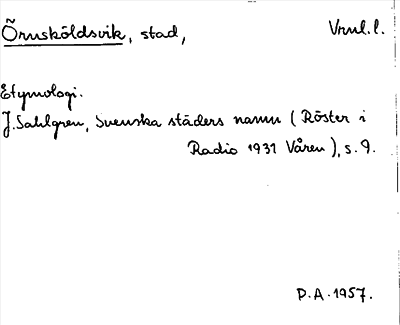 Örnsköldsvik, stad, Vrml.l.
Etymologi.
J. Sahlgren, Svenska städers namn (Röster i
Radio 1931 Våren), s. 9.
P.A. 1957.